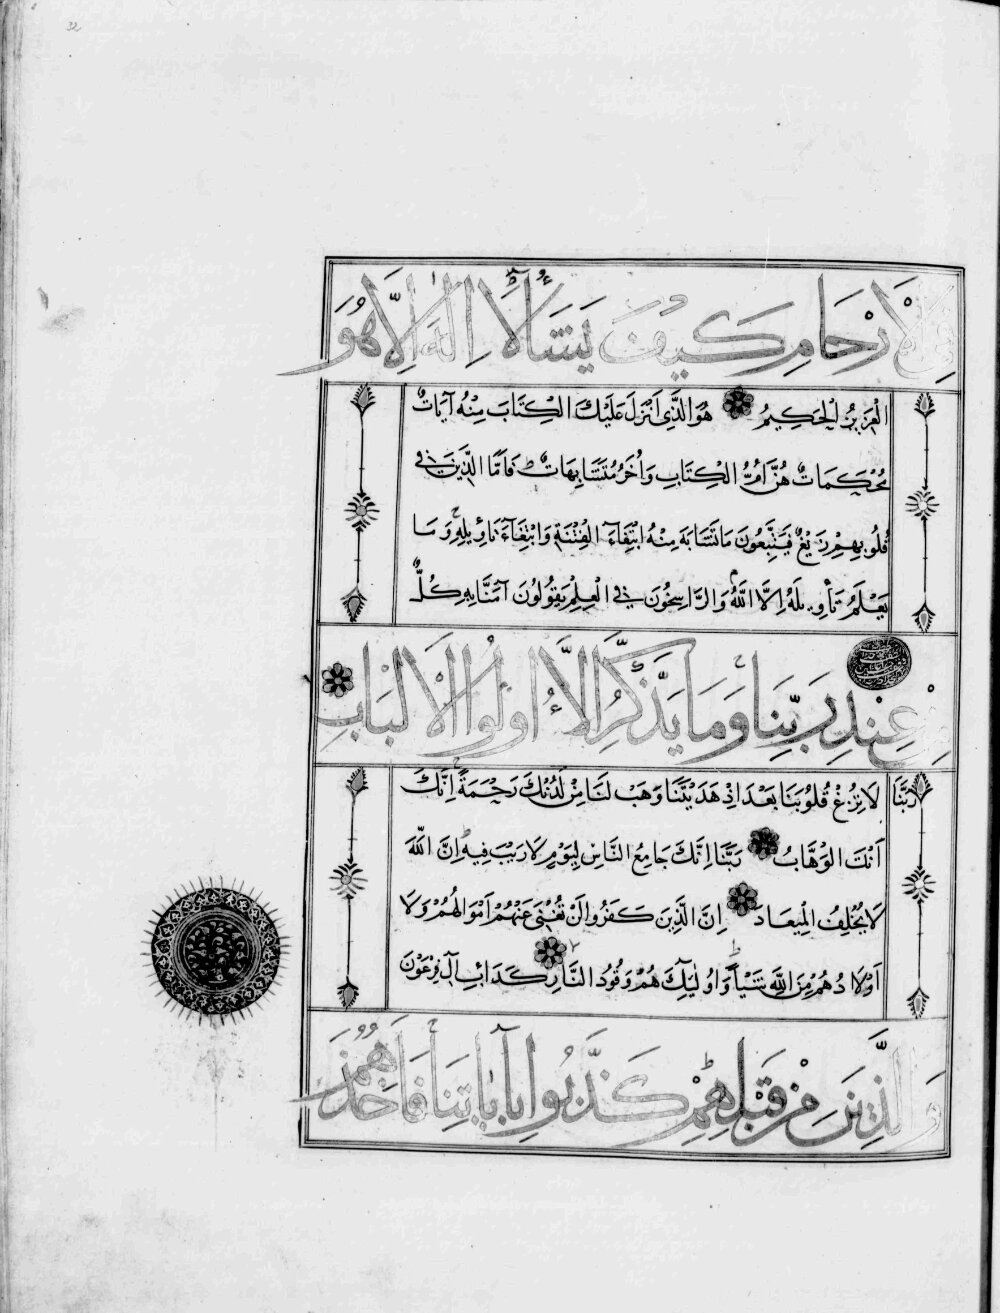 32
فِي الْأَرْحَامِ كَيْفَ يَشَآءُ لَا اِلٰهَ اِلَّا هُوَ
الْعَزِيزُ الْحَكِيمُ هُوَ الَّذِي اَنْزَلَ عَلَيْكَ الْكِتَابَ مِنْهُ آيَاتٌ
مُحْكَمَاتٌ هُنَّ أُمُّ الْكِتَابِ وَأُخَرُ مُتَشَابِهَاتٌ فَاَمَّا الَّذِينَ فِي
قُلُوبِهِمْ زَيْغٌ فَيَتَّبِعُونَ مَا تَشَابَهَ مِنْهُ ابْتِغَآءَ الْفِتْنَةِ وَابْتِغَآءَ تَأْوِيلِهِ وَمَا
يَعْلَمُ تَأْوِيلَهُ اِلَّا اللَّهُ وَالرَّاسِخُونَ فِي الْعِلْمِ يَقُولُونَ آمَنَّا بِهِ كُلٌّ
مِنْ عِنْدِ رَبِّنَا وَمَا يَذَّكَّرُ اِلَّا اُولُوا الْاَلْبَابِ
رَبَّنَا لَا تُزِغْ قُلُوبَنَا بَعْدَ اِذْ هَدَيْتَنَا وَهَبْ لَنَا مِنْ لَدُنْكَ رَحْمَةً اِنَّكَ
اَنْتَ الْوَهَّابُ رَبَّنَا اِنَّكَ جَامِعُ النَّاسِ لِيَوْمٍ لَا رَيْبَ فِيهِ اِنَّ اللَّهَ
لَا يُخْلِفُ الْمِيعَادَ اِنَّ الَّذِينَ كَفَرُوا لَنْ تُغْنِيَ عَنْهُمْ اَمْوَالُهُمْ وَلَا
اَوْلَادُهُمْ مِنَ اللَّهِ شَيْئًا وَاُولٰئِكَ هُمْ وَقُودُ النَّارِ كَدَاْبِ آلِ فِرْعَوْنَ
وَالَّذِينَ مِنْ قَبْلِهِمْ كَذَّبُوا بِآيَاتِنَا فَاَخَذَهُمُ